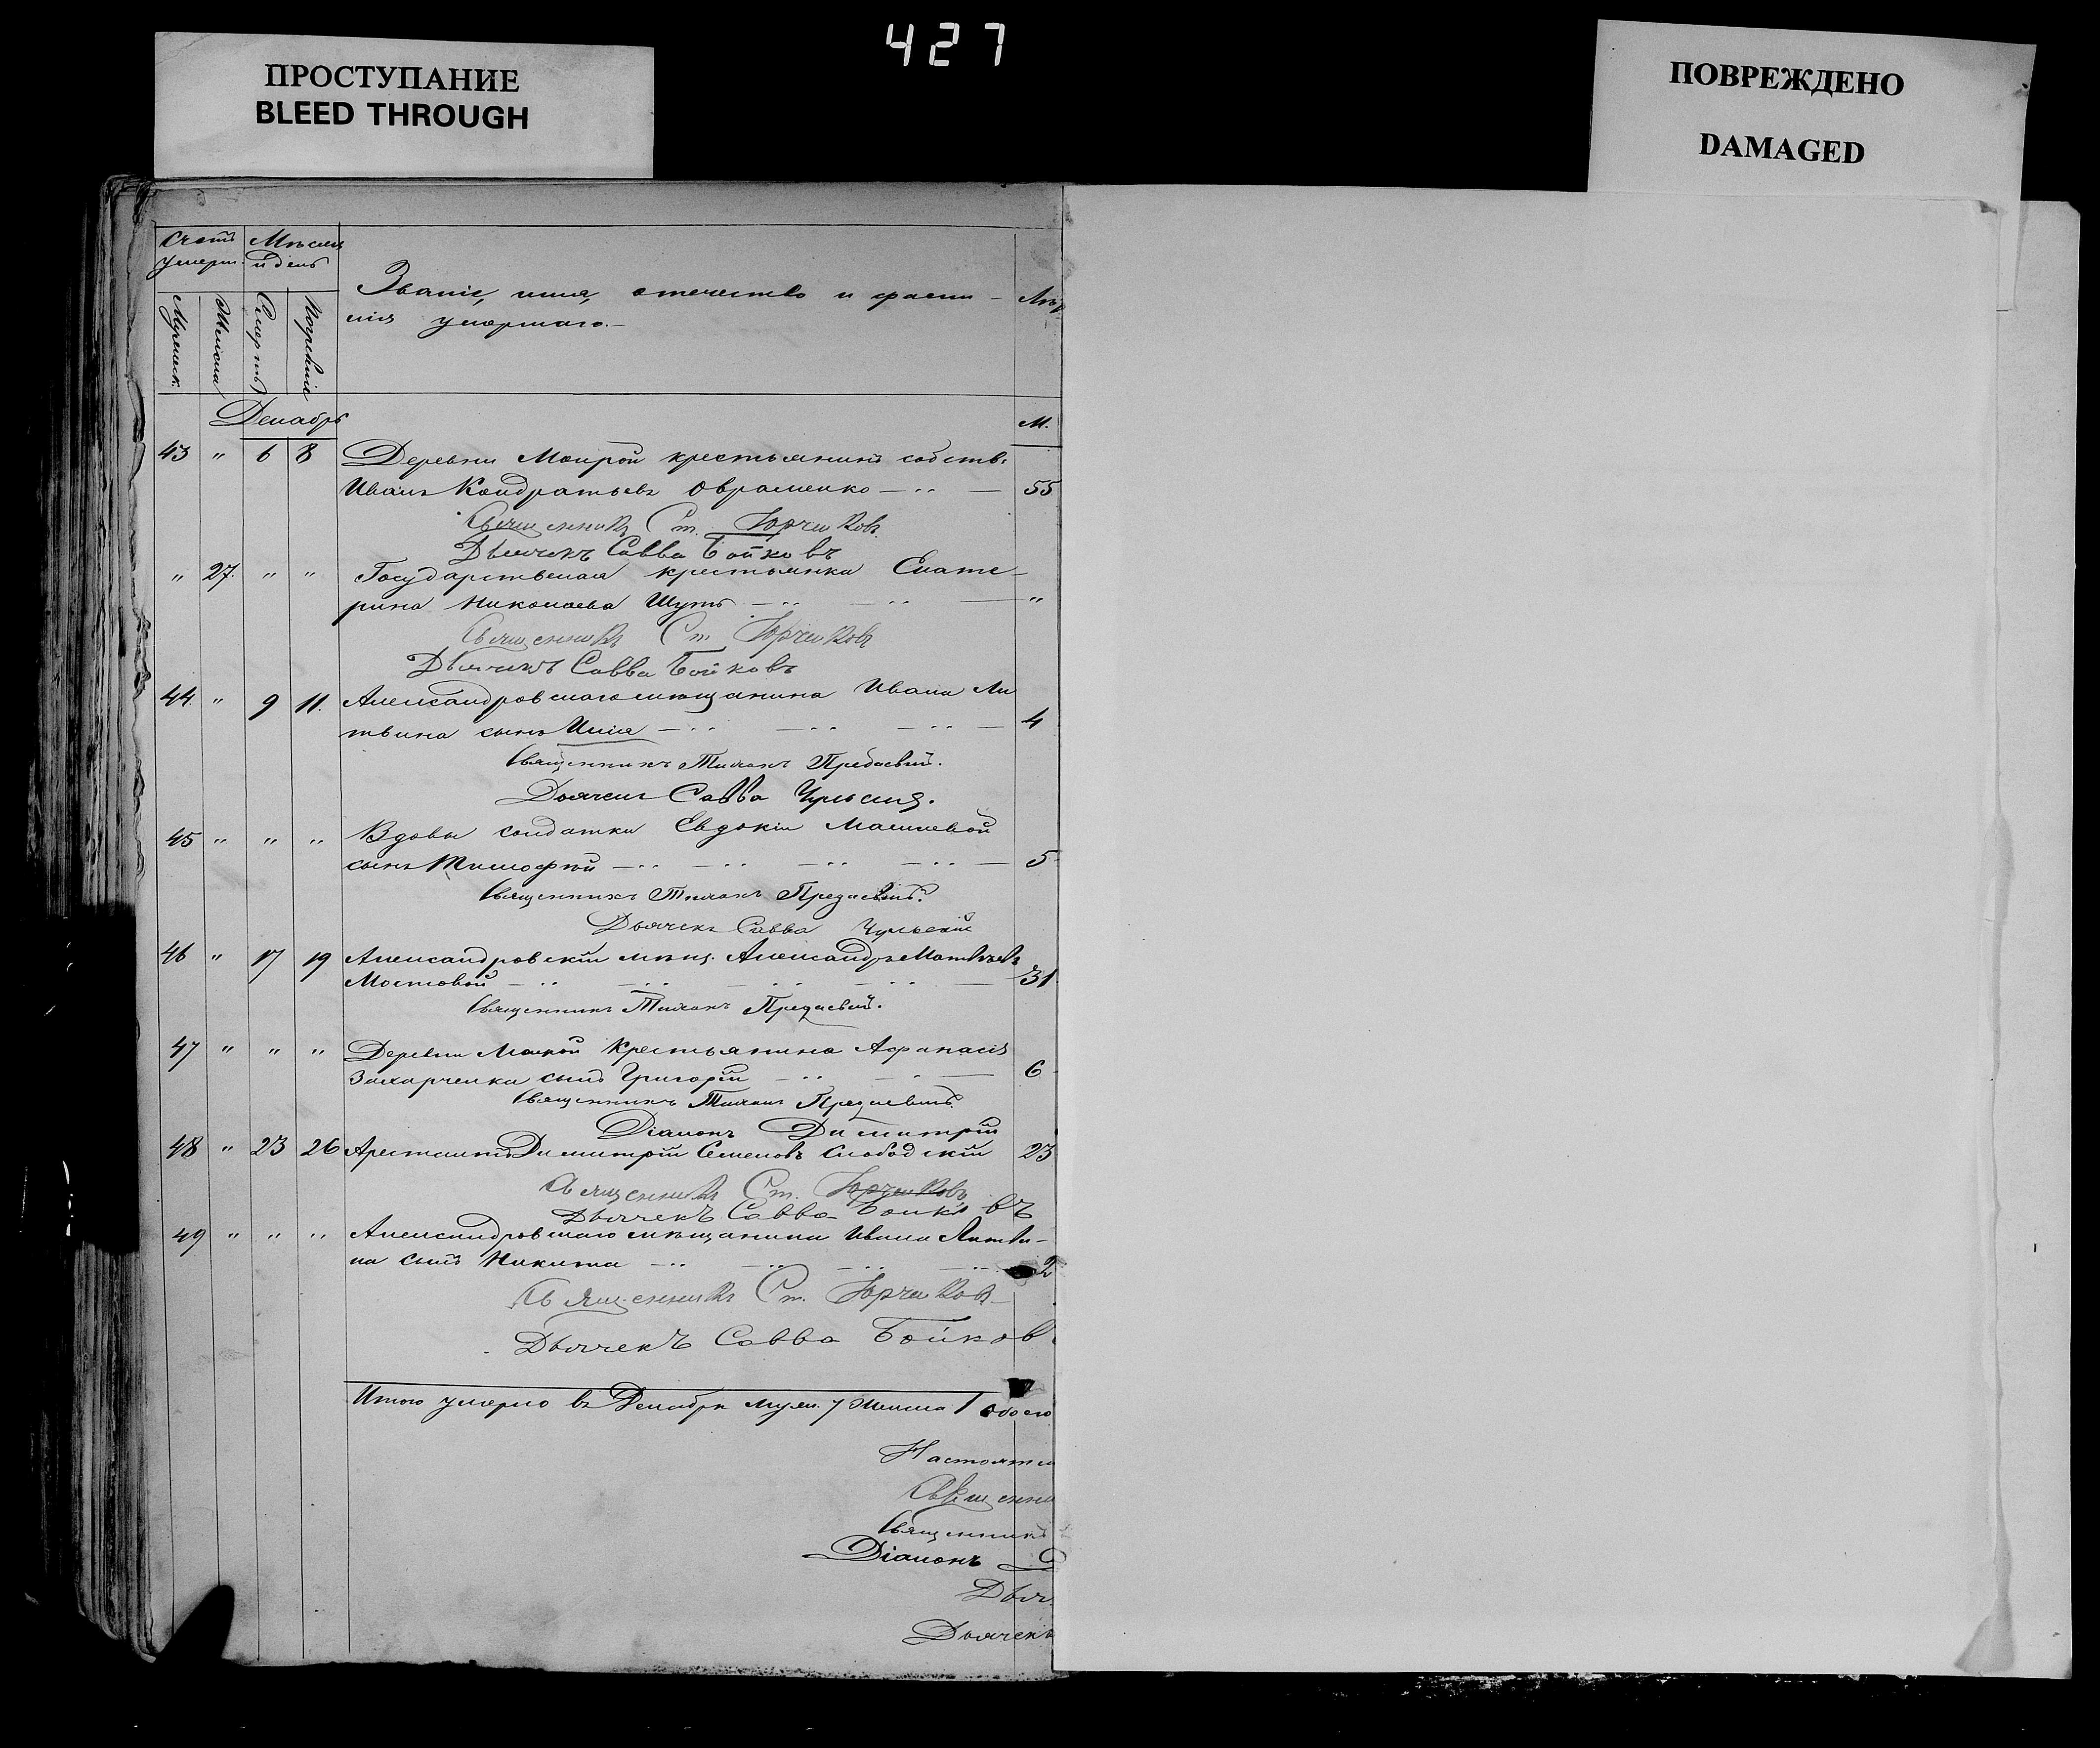 427
ПРОСТУПАНИЕ
BLEED THROUGH
ПОВРЕЖДЕНО
DAMAGED
Счетъ умерш.
Мѣсяцъ и день
Званіе, имя, отечество и фами-
лія умершаго.
Лѣт
Мужеск.
Женска
Смерти
Погребенія
Декабрь
М.
43 " 6 8 Деревни Мокрой крестьянинъ собств.
Иванъ Кондратьевъ Авраменко 55
Священникъ Ст. Юрченковъ
Дьячекъ Савва Бойковъ
" 27. " " Государственая крестьянка Екате-
рина Николаева Шутъ "
Священникъ Ст. Юрченковъ
Дьячекъ Савва Бойковъ
44. " 9 11. Александровскаго мѣщанина Ивана Ли
твина сынъ Илія 4
Священникъ Тихонъ
Дьячекъ Савва
45 " " " Вдовы солдатки Евдокіи
сынъ Тимофей 5
Священникъ Тихонъ
Дьячекъ Савва
46 " 17 19 Александровскій мѣщ. Александръ Матвѣевъ
Мостовой 31
Священникъ Тихонъ
47 " " " Деревни Мокрой крестьянина Афанасія
Захарченка сынъ Григорій 6
Священникъ Тихонъ
Діаконъ Димитрій
48 " 23 26 Арестантъ Димитрій Семеновъ Слободскій 23
Священникъ Ст. Юрченковъ
Дьячекъ Савва Бойковъ
49 " " " Александровскаго мѣщанина Ивана Литви-
на сынъ Никита 2
Священникъ Ст. Юрченков
Дьячекъ Савва Бойков
Итого умерло въ Декабрѣ муж. 7 женска 1 обоего
Настояте
Священни
Священникъ
Діаконъ
Дьяч
Дьячекъ